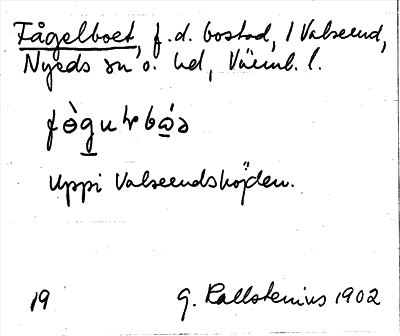 Fågelboet, f.d. bostad, i Valserud,
Nyeds sn o. hd, Värml. l.
Uppi Valserudshöjden.
19 G. Kallstenius 1902